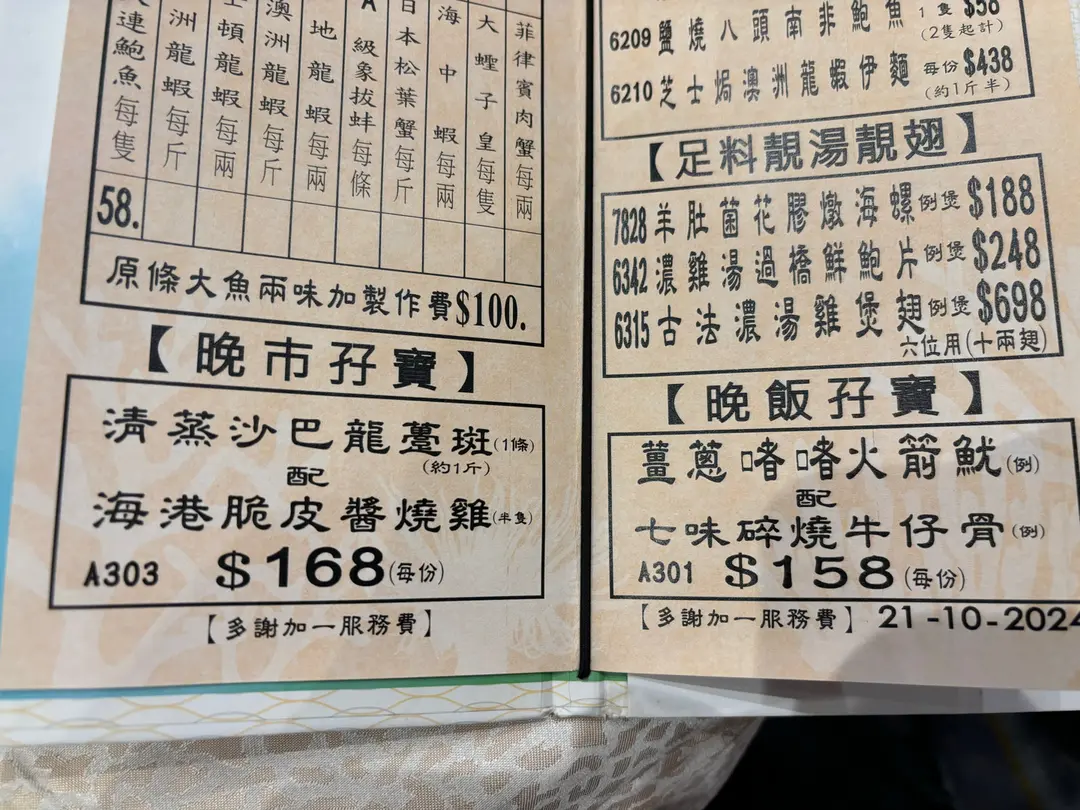 連鮑魚每隻
洲龍蝦每斤
頓龍蝦每兩
澳洲龍蝦每斤
地龍蝦每兩
A級象拔蚌每條
日本松葉蟹每斤
海中蝦每兩
大蟶子皇每隻
菲律賓肉蟹每兩
58.
原條大魚兩味加製作費$100.
【晚市孖寶】
清蒸沙巴龍躉斑(1條)
(約1斤)
配
海港脆皮醬燒雞(半隻)
A303 $168(每份)
【多謝加一服務費】
6209 鹽燒八頭南非鮑魚 1隻 $58
(2隻起計)
6210 芝士焗澳洲龍蝦伊麵 每份 $438
(約1斤半)
【足料靚湯靚翅】
7828 羊肚菌花膠燉海螺 例煲 $188
6342 濃雞湯過橋鮮鮑片 例煲 $248
6315 古法濃湯雞煲翅 例煲 $698
六位用(十兩翅)
【晚飯孖寶】
薑蔥啫啫火箭魷(例)
配
七味碎燒牛仔骨(例)
A301 $158(每份)
【多謝加一服務費】 21-10-2024